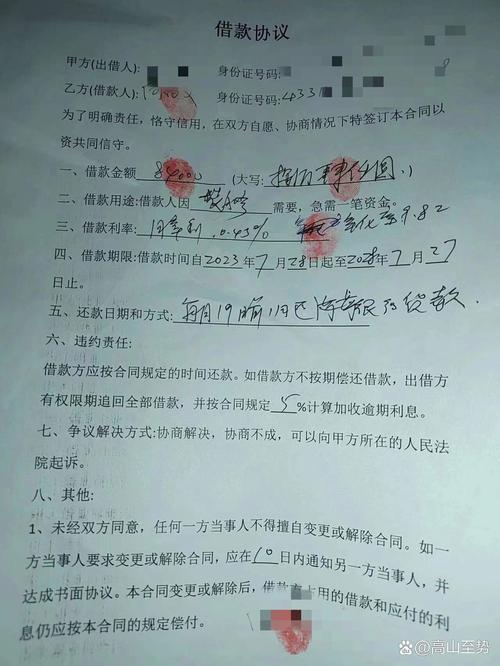 借款协议
甲方(出借人): 身份证号码:
乙方(借款人): 身份证号码: 4331
为了明确责任，恪守信用，在双方自愿、协商情况下特签订本合同以
资共同信守。
一、借款金额 84000 (大写: 捌万肆仟圆.)
二、借款用途:借款人因 装修 需要，急需一笔资金。
三、借款利率: 月率利 0.43% 9.82
四、借款期限:借款时间自2023年7月28日起至2028年7月27
日止。
五、还款日期和方式: 每月19 贷款.
六、违约责任:
借款方应按合同规定的时间还款。如借款方不按期偿还借款，出借方
有权限期追回全部借款，并按合同规定 5 %计算加收逾期利息。
七、争议解决方式:协商解决，协商不成，可以向甲方所在的人民法
院起诉。
八、其他:
1、未经双方同意，任何一方当事人不得擅自变更或解除合同。如一
方当事人要求变更或解除合同，应在10日内通知另一方当事人，并
达成书面协议。本合同变更或解除后，借款方占用的借款和应付的利
息仍应按本合同的规定偿付。
@高山至势